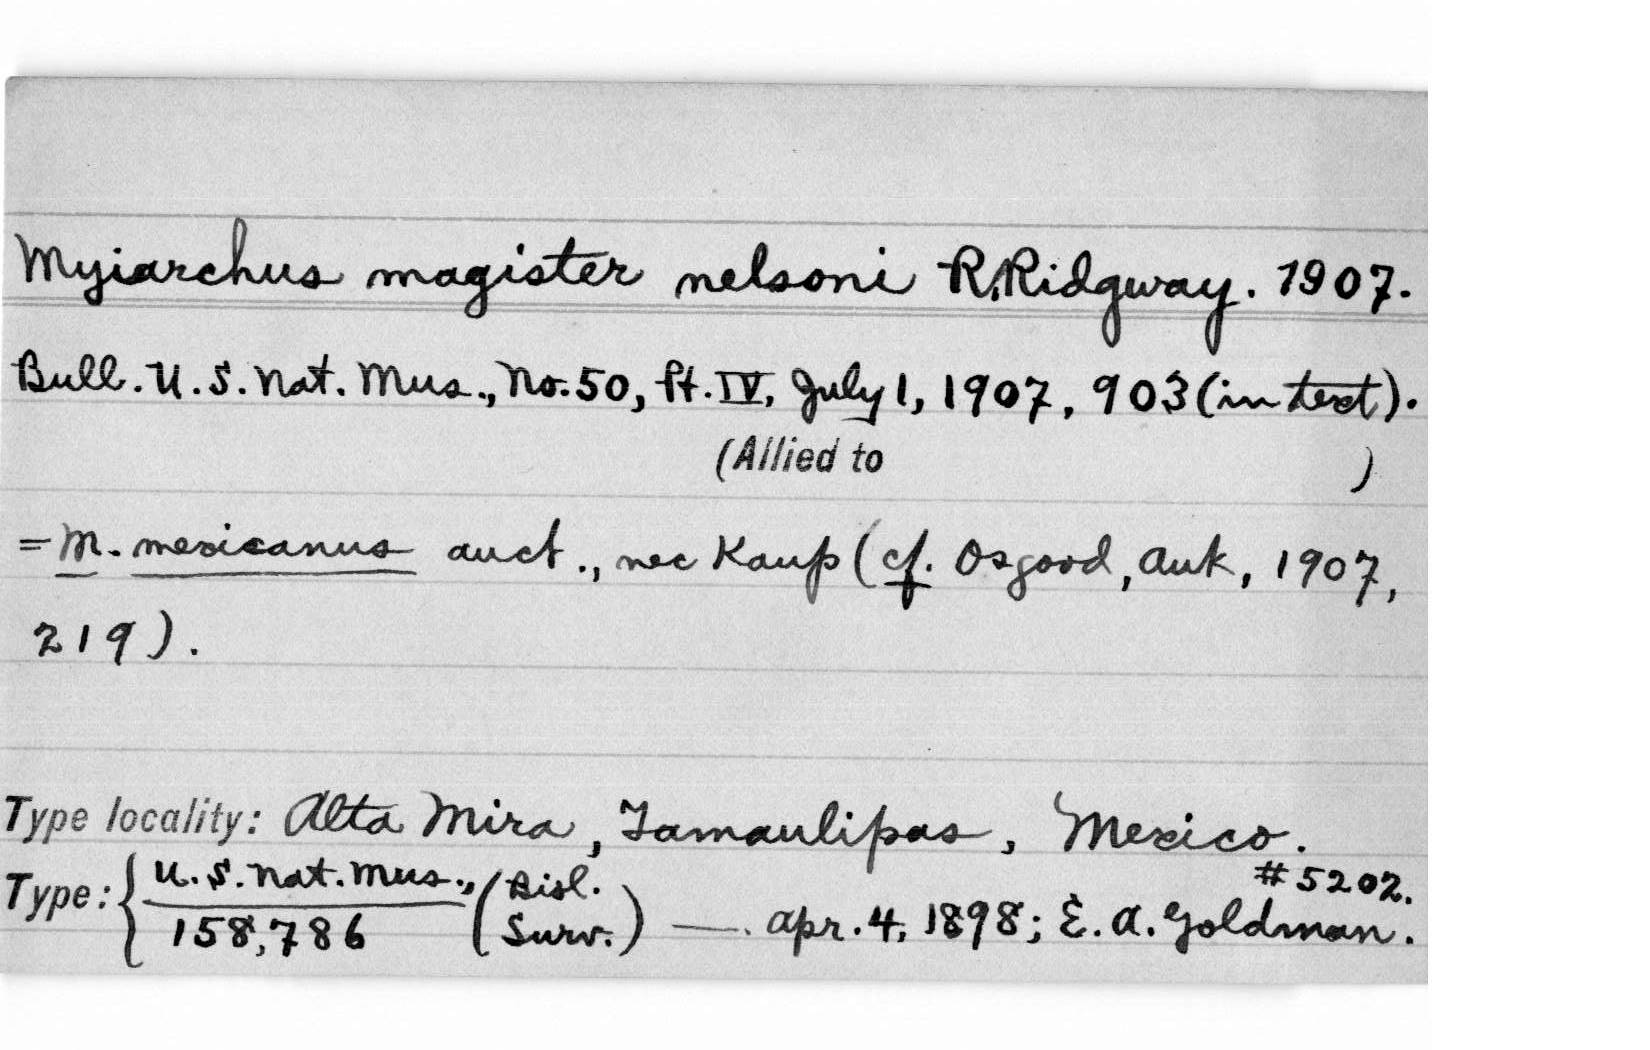 Myiarchus magister nelsoni R.Ridgway. 1907.
Bull. U.S. Nat. Mus., No. 50, Pt. IV, July 1, 1907, 903 (in text).
(Allied to )
= M. mexicanus auct., nec Kaup (cf. Osgood, Auk, 1907,
219).
Type locality: Alta Mira, Tamaulipas, Mexico.
#5202.
Type: { U.S. Nat. Mus., (Biol. 
158,786 Surv.) — . Apr. 4, 1898; E. A. Goldman.